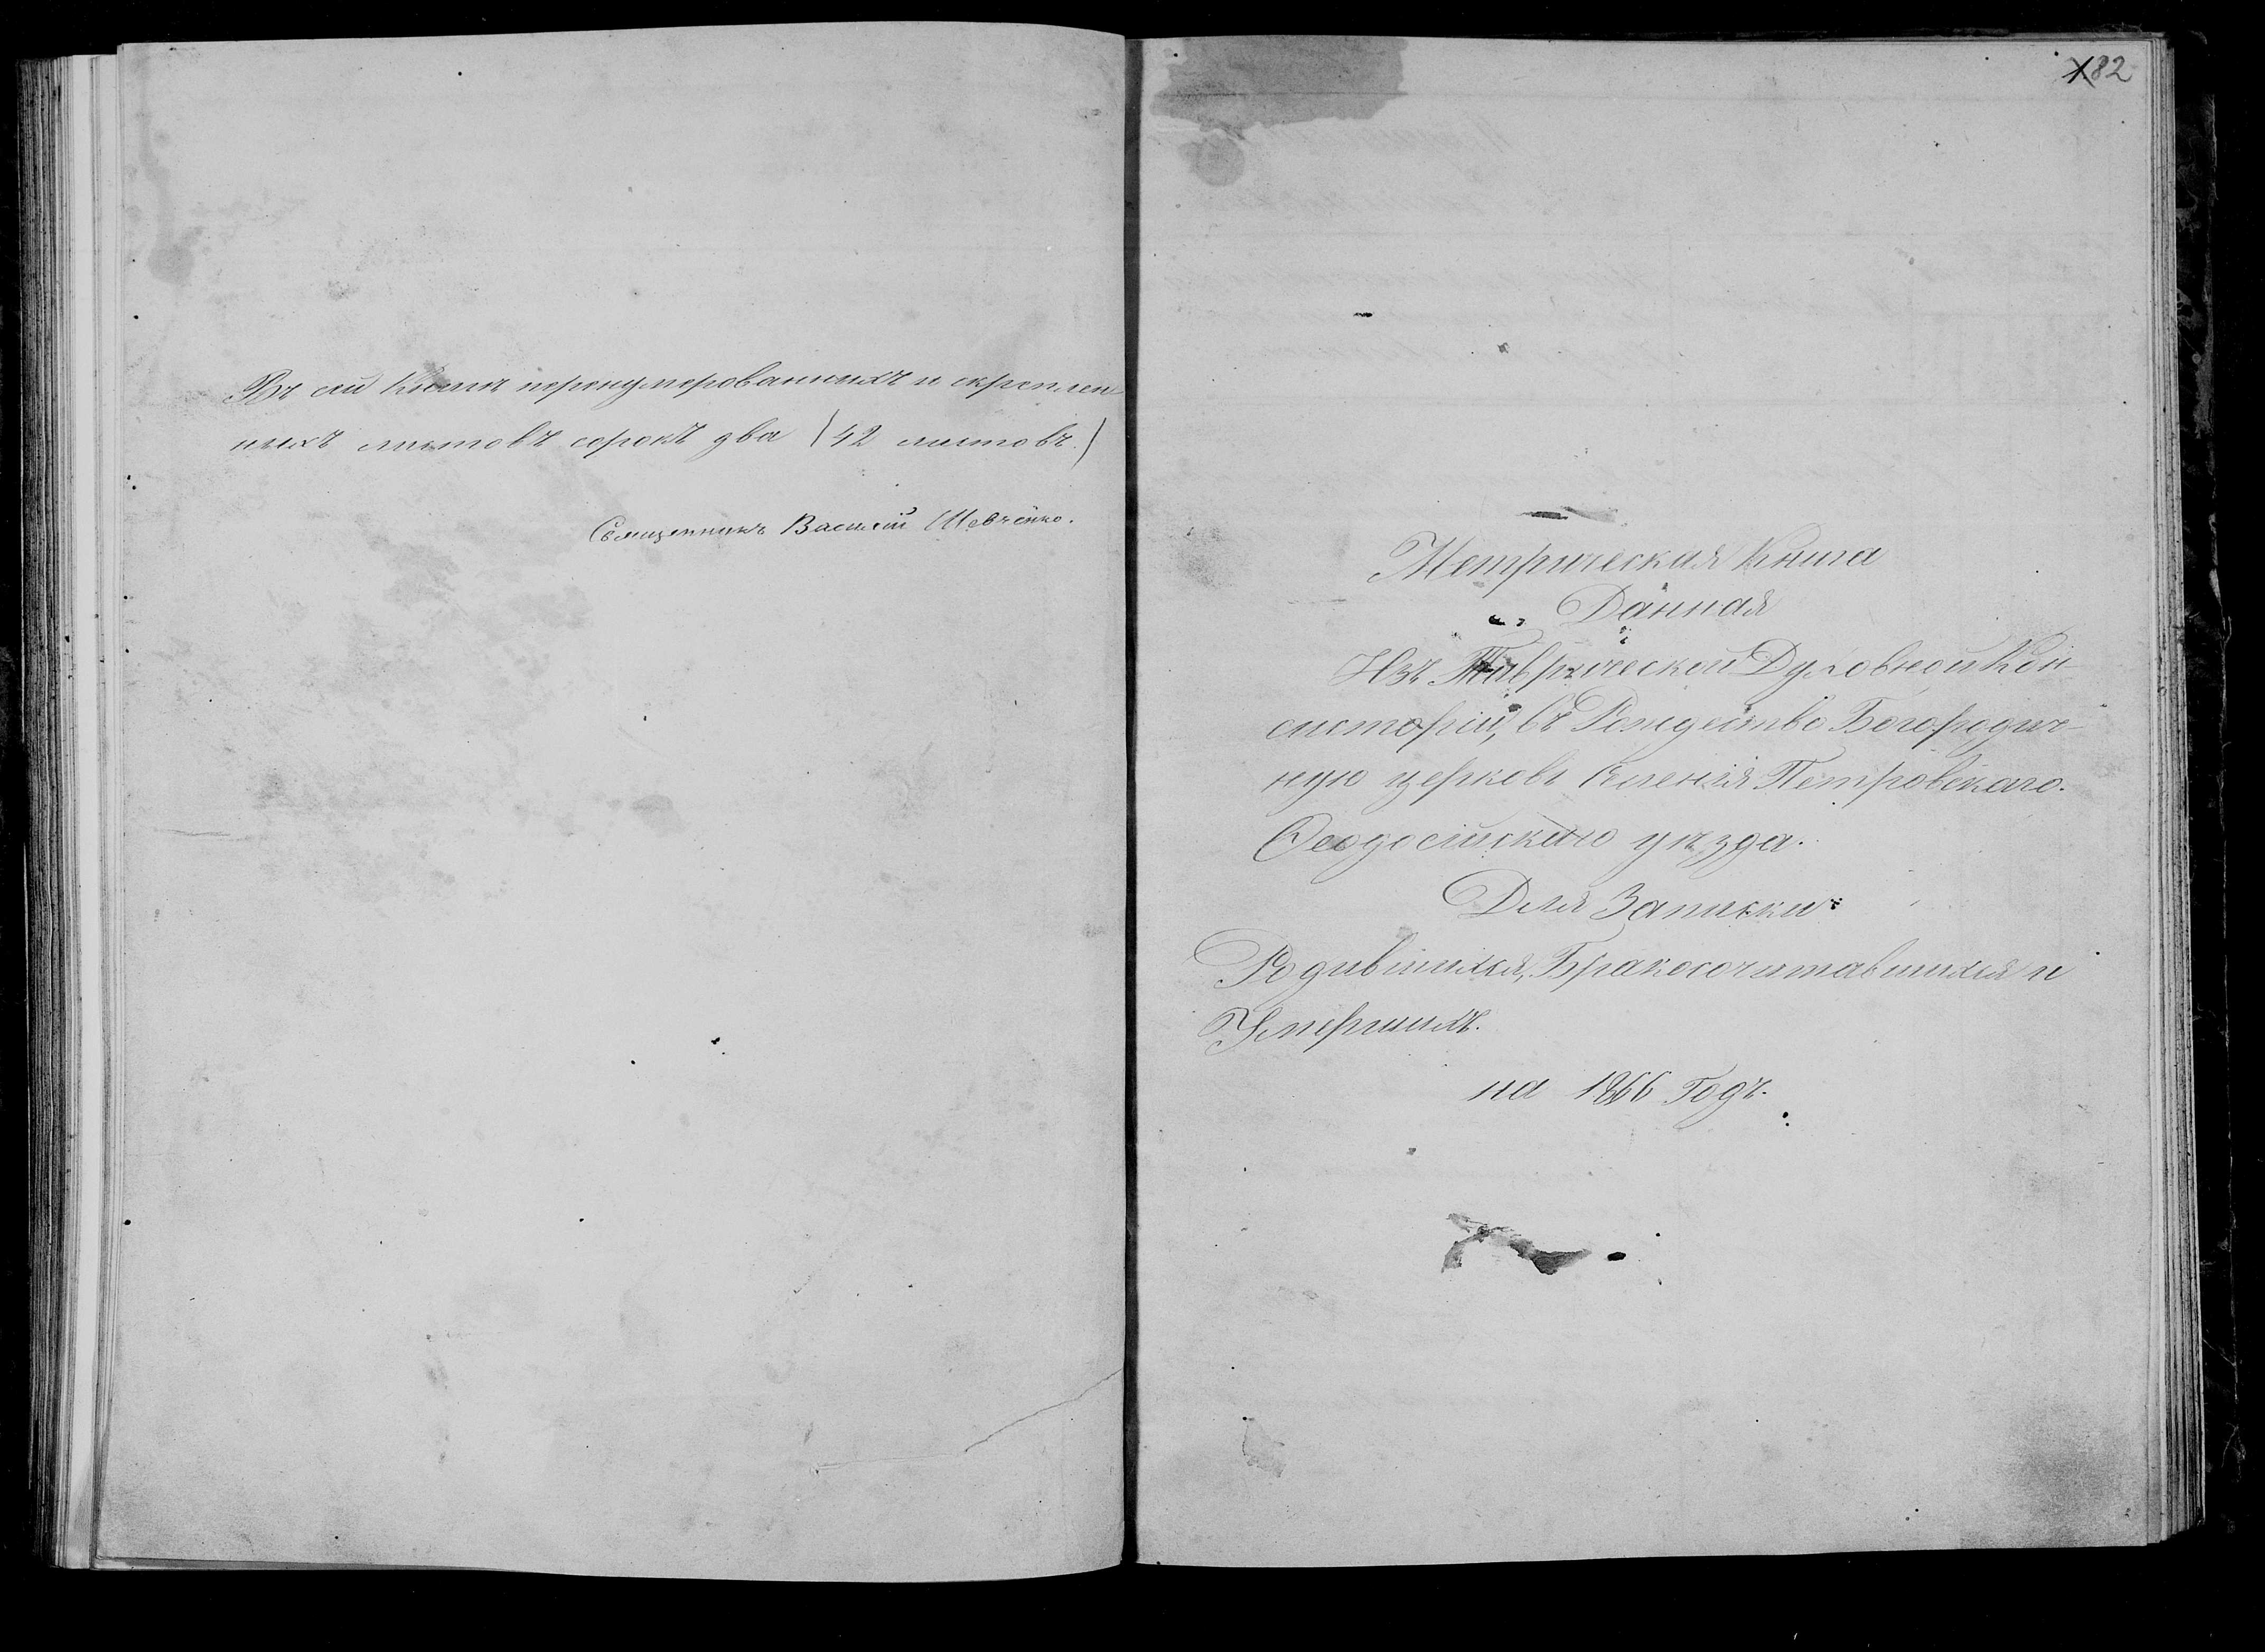 Въ сей Книгѣ перенумерованныхъ и скреплен
ныхъ листовъ сорокъ два (42 листовъ.)
Священникъ Василій Шевченко.
182
Метрическая Книга
Данная
Изъ Таврической Духовной Кон-
систоріи, въ Рождество Богородич-
ную церковь селенія Петровскаго.
Ѳеодосійскаго уѣзда.
Для Записки
Родившихся, Бракосочитавшихся и
Умершихъ.
на 1866 Годъ.